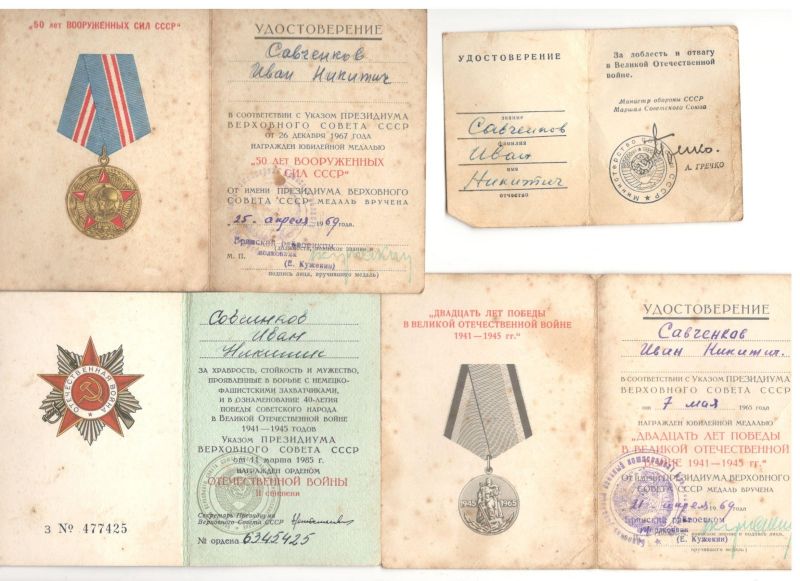 „50 лет ВООРУЖЕННЫХ СИЛ СССР"
УДОСТОВЕРЕНИЕ
Савченков
Иван Никитич
В СООТВЕТСТВИИ С УКАЗОМ ПРЕЗИДИУМА
ВЕРХОВНОГО СОВЕТА СССР
ОТ 26 ДЕКАБРЯ 1967 ГОДА
НАГРАЖДЕН ЮБИЛЕЙНОЙ МЕДАЛЬЮ
„50 ЛЕТ ВООРУЖЕННЫХ
СИЛ СССР"
ОТ ИМЕНИ ПРЕЗИДИУМА ВЕРХОВНОГО
СОВЕТА СССР МЕДАЛЬ ВРУЧЕНА
„25" апреля 1969 года.
Брянский райвоенком
полковник
(Е. Кужекин)
М. П.
подпись лица, вручившего медаль)
УДОСТОВЕРЕНИЕ
звание
Савченков
фамилия
Иван
имя
Никитич
отчество
За доблесть и отвагу
в Великой Отечественной
войне.
Министр обороны СССР
Маршал Советского Союза
А. ГРЕЧКО
ОТЕЧЕСТВЕННАЯ ВОЙНА
З № 477425
Савченков
Иван
Никитич
ЗА ХРАБРОСТЬ, СТОЙКОСТЬ И МУЖЕСТВО,
ПРОЯВЛЕННЫЕ В БОРЬБЕ С НЕМЕЦКО-
ФАШИСТСКИМИ ЗАХВАТЧИКАМИ,
И В ОЗНАМЕНОВАНИЕ 40-ЛЕТИЯ
ПОБЕДЫ СОВЕТСКОГО НАРОДА
В ВЕЛИКОЙ ОТЕЧЕСТВЕННОЙ ВОЙНЕ
1941—1945 ГОДОВ
УКАЗОМ ПРЕЗИДИУМА
ВЕРХОВНОГО СОВЕТА СССР
от 11 марта 1985 г.
НАГРАЖДЕН ОРДЕНОМ
ОТЕЧЕСТВЕННОЙ ВОЙНЫ
II степени
Секретарь Президиума
Верховного Совета СССР
№ ордена 6345425
„ДВАДЦАТЬ ЛЕТ ПОБЕДЫ
В ВЕЛИКОЙ ОТЕЧЕСТВЕННОЙ ВОЙНЕ
1941—1945 гг."
1945 1965
УДОСТОВЕРЕНИЕ
Савченков
Иван Никитич.
В СООТВЕТСТВИИ С УКАЗОМ ПРЕЗИДИУМА
ВЕРХОВНОГО СОВЕТА СССР
от 7 мая 1965 года
НАГРАЖДЕН ЮБИЛЕЙНОЙ МЕДАЛЬЮ
„ДВАДЦАТЬ ЛЕТ ПОБЕДЫ
В ВЕЛИКОЙ ОТЕЧЕСТВЕННОЙ
ВОЙНЕ 1941—1945 гг."
ОТ ИМЕНИ ПРЕЗИДИУМА ВЕРХОВНОГО
СОВЕТА СССР МЕДАЛЬ ВРУЧЕНА
апреля 1969 года.
Брянский райвоенком
полковник
(Е. Кужекин)
вручившего медаль)